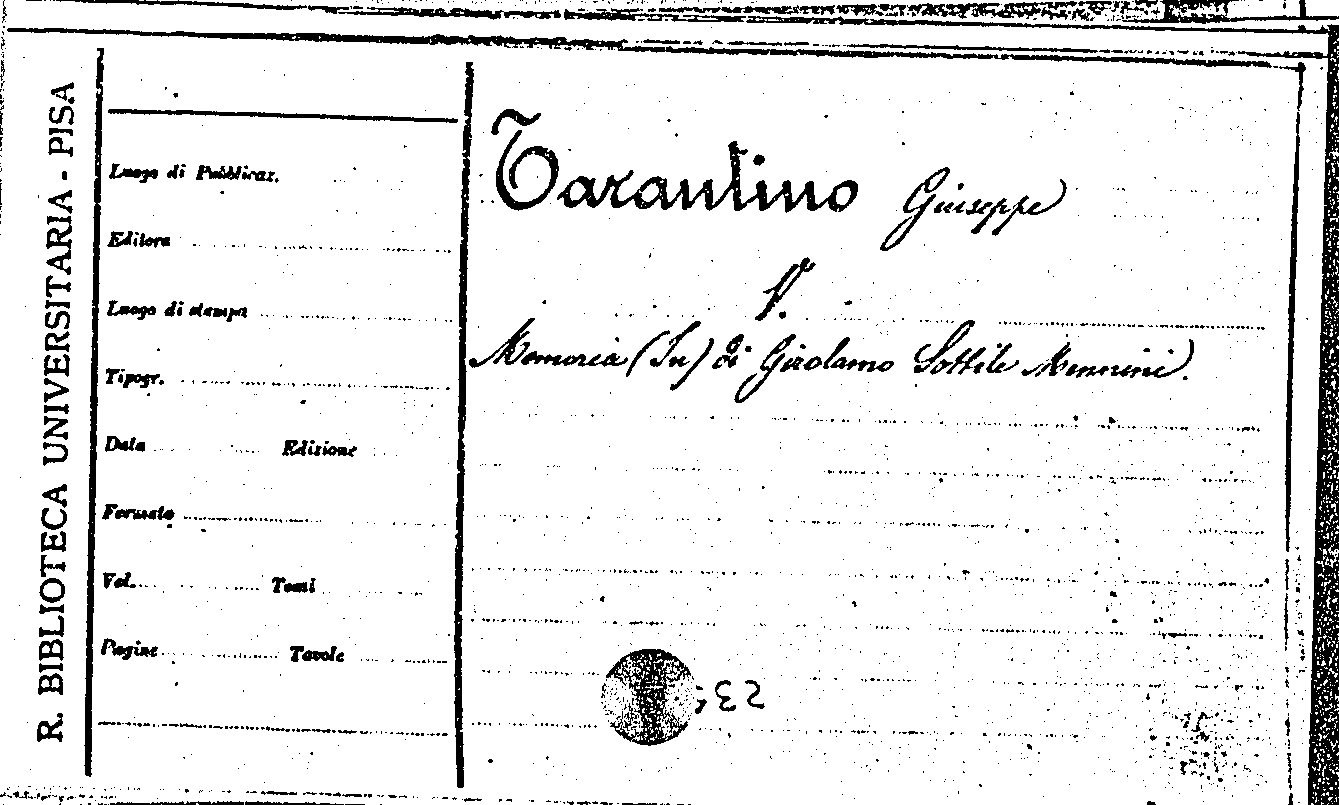 R. BIBLIOTECA UNIVERSITARIA - PISA
Luogo di Pubblicaz.
Editore
Luogo di stampa
Tipogr.
Data Edizione
Formato
Vol. Tomi
Pagine Tavole
Tarantino Giuseppe
V.
Memoria (In) di Girolamo Sottile Mennini.